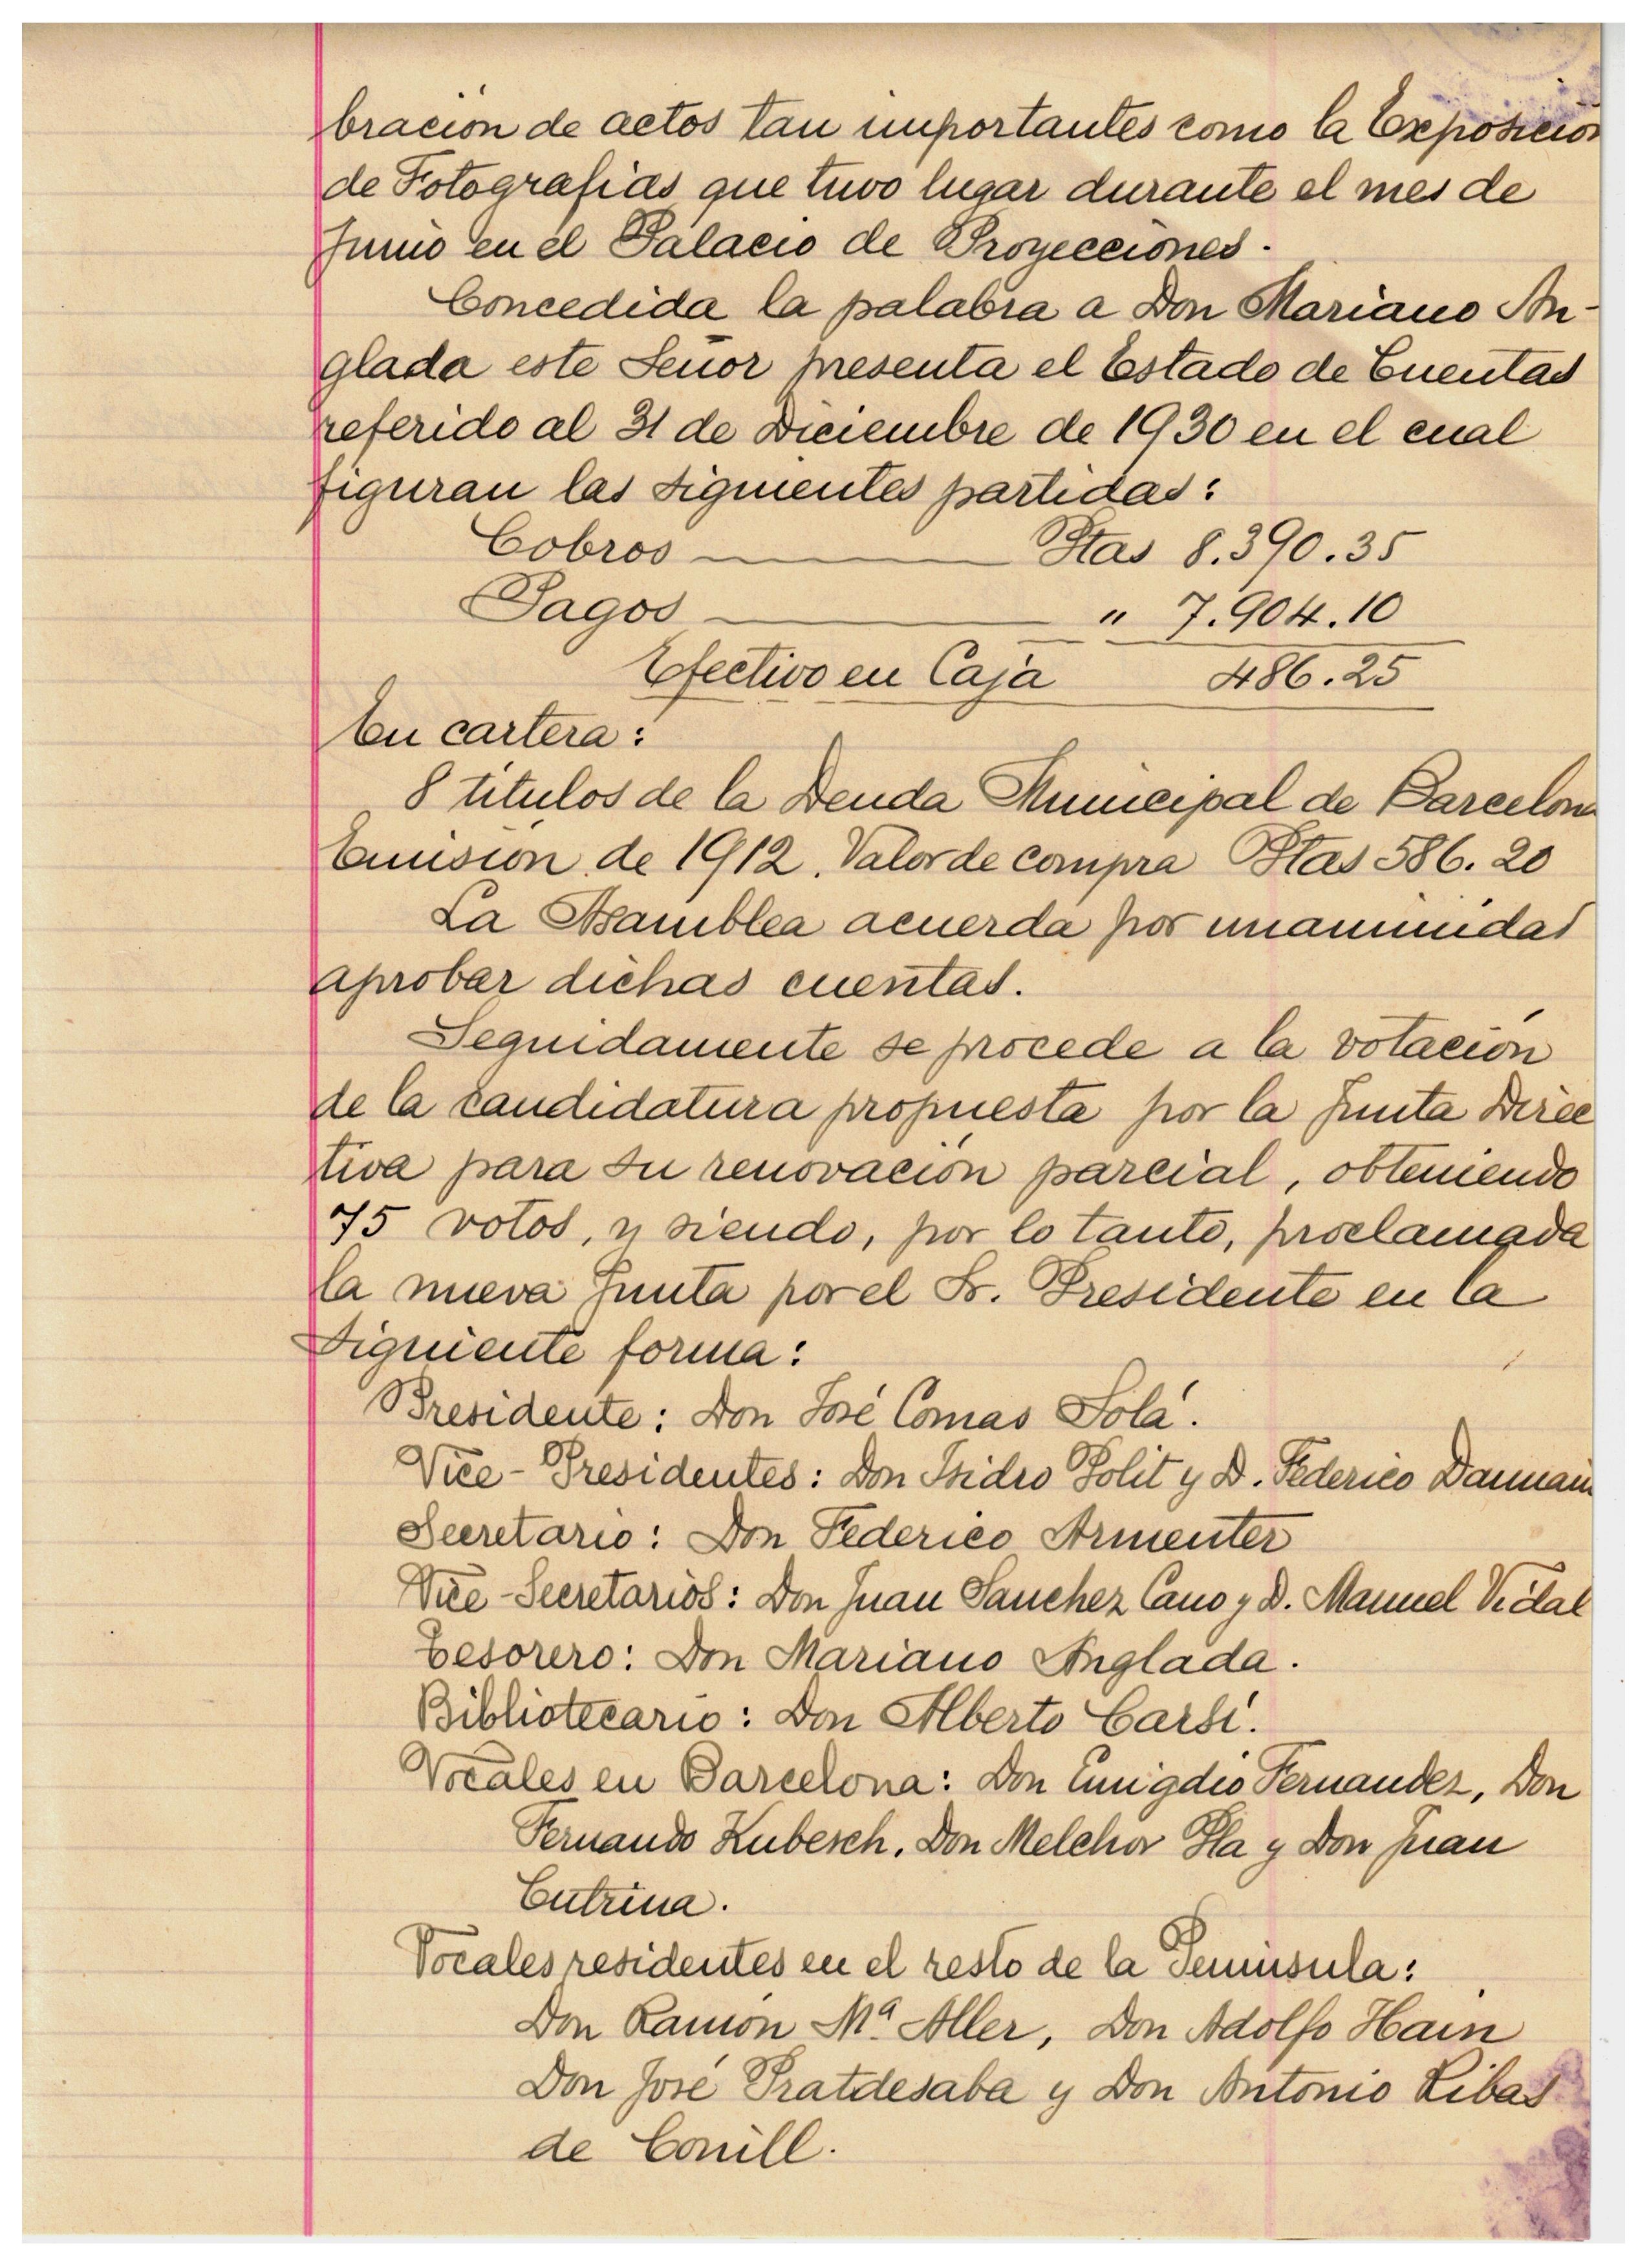 bración de actos tan importantes como la Exposición
de Fotografias que tuvo lugar durante el mes de
Junio en el Palacio de Proyecciones.
Concedida la palabra a Don Mariano An-
glada este Señor presenta el Estado de Cuentas
referido al 31 de Diciembre de 1930 en el cual
figuran las siguientes partidas:
Cobros — Ptas 8.390.35
Pagos — " 7.904.10
Efectivo en Caja 486.25
En cartera:
8 titulos de la Deuda Municipal de Barcelona
Emisión de 1912. Valor de compra Ptas 586.20
La Asamblea acuerda por unanimidad
aprobar dichas cuentas.
Seguidamente se procede a la votación
de la candidatura propuesta por la Junta Direc
tiva para su renovación parcial, obteniendo
75 votos, y siendo, por lo tanto, proclamada
la nueva Junta por el Sr. Presidente en la
siguiente forma:
Presidente: Don José Comas Solá.
Vice-Presidentes: Don Isidro Polit y D. Federico
Secretario: Don Federico Armenter
Vice-Secretarios: Don Juan Sanchez Cano y D. Manuel Vidal
Tesorero: Don Mariano Anglada.
Bibliotecario: Don Alberto Carsí.
Vocales en Barcelona: Don Emigdio Fernandez, Don
Fernando Kubesch, Don Melchor Pla y Don Juan
Cutrina.
Vocales residentes en el resto de la Peninsula:
Don Ramón Mª Aller, Don Adolfo Hain
Don José Pratdesaba y Don Antonio Ribas
de Conill.